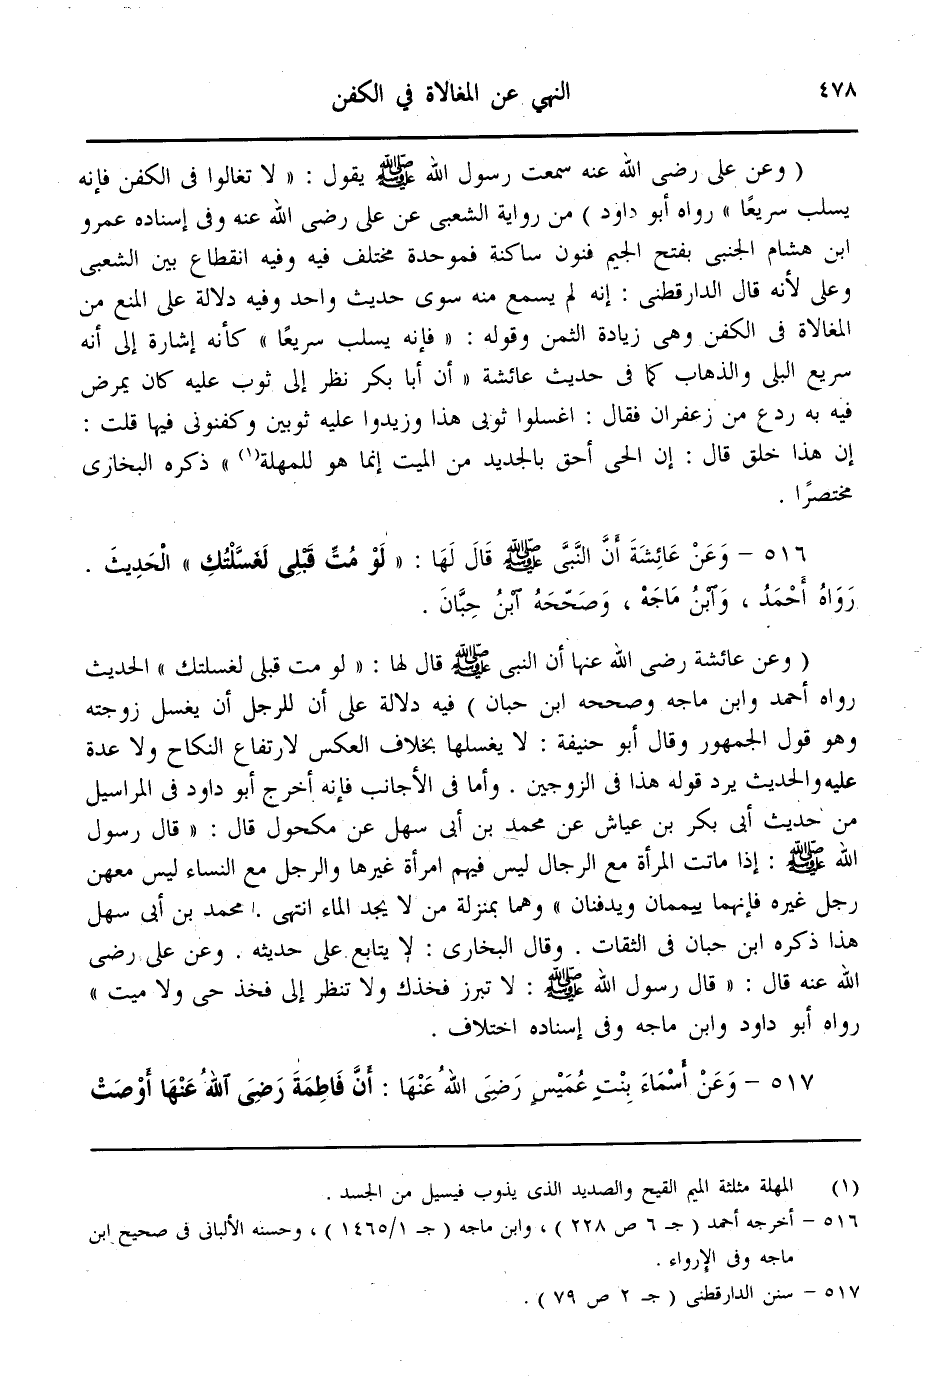 ٤٧٨ النهي عن المغالاة في الكفن
( وعن على رضى الله عنه سمعت رسول الله ﷺ يقول : « لا تغالوا فى الكفن فإنه
يسلب سريعًا » رواه أبو داود ) من رواية الشعبى عن على رضى الله عنه وفى إسناده عمرو
ابن هشام الجنبى بفتح الجيم فنون ساكنة فموحدة مختلف فيه وفيه انقطاع بين الشعبى
وعلى لأنه قال الدارقطنى : إنه لم يسمع منه سوى حديث واحد وفيه دلالة على المنع من
المغالاة فى الكفن وهى زيادة الثمن وقوله : « فإنه يسلب سريعًا » كأنه إشارة إلى أنه
سريع البلى والذهاب كما فى حديث عائشة « أن أبا بكر نظر إلى ثوب عليه كان يمرض
فيه به ردع من زعفران فقال : اغسلوا ثوبى هذا وزيدوا عليه ثوبين وكفنونى فيها قلت :
إن هذا خلق قال : إن الحى أحق بالجديد من الميت إنما هو للمهلة(١) » ذكره البخارى
مختصرًا .
٥١٦ – وَعَنْ عَائِشَةَ أَنَّ النَّبِىَّ ﷺ قَالَ لَهَا : « لَوْ مُتِّ قَبْلِى لَغَسَّلْتُكِ » الْحَدِيثَ .
رَوَاهُ أَحْمَدُ ، وَٱبْنُ مَاجَهْ ، وَصَحَّحَهُ ٱبْنُ حِبَّانَ .
( وعن عائشة رضى الله عنها أن النبى ﷺ قال لها : « لو مت قبلى لغسلتك » الحديث
رواه أحمد وابن ماجه وصححه ابن حبان ) فيه دلالة على أن للرجل أن يغسل زوجته
وهو قول الجمهور وقال أبو حنيفة : لا يغسلها بخلاف العكس لارتفاع النكاح ولا عدة
عليه والحديث يرد قوله هذا فى الزوجين . وأما فى الأجانب فإنه أخرج أبو داود فى المراسيل
من حديث أبى بكر بن عياش عن محمد بن أبى سهل عن مكحول قال : « قال رسول
الله ﷺ : إذا ماتت المرأة مع الرجال ليس فيهم امرأة غيرها والرجل مع النساء ليس معهن
رجل غيره فإنهما ييممان ويدفنان » وهما بمنزلة من لا يجد الماء انتهى . محمد بن أبى سهل
هذا ذكره ابن حبان فى الثقات . وقال البخارى : لا يتابع على حديثه . وعن على رضى
الله عنه قال : « قال رسول الله ﷺ : لا تبرز فخذك ولا تنظر إلى فخذ حى ولا ميت »
رواه أبو داود وابن ماجه وفى إسناده اختلاف .
٥١٧ – وَعَنْ أَسْمَاءَ بِنْتِ عُمَيْسٍ رَضِىَ اللهُ عَنْهَا : أَنَّ فَاطِمَةَ رَضِىَ ٱللهُ عَنْهَا أَوْصَتْ
(١) المهلة مثلثة الميم القيح والصديد الذى يذوب فيسيل من الجسد .
٥١٦ – أخرجه أحمد ( جـ ٦ ص ٢٢٨ ) ، وابن ماجه ( جـ ١/١٤٦٥ ) ، وحسنه الألبانى فى صحيح ابن
ماجه وفى الإرواء .
٥١٧ – سنن الدارقطنى ( جـ ٢ ص ٧٩ ) .